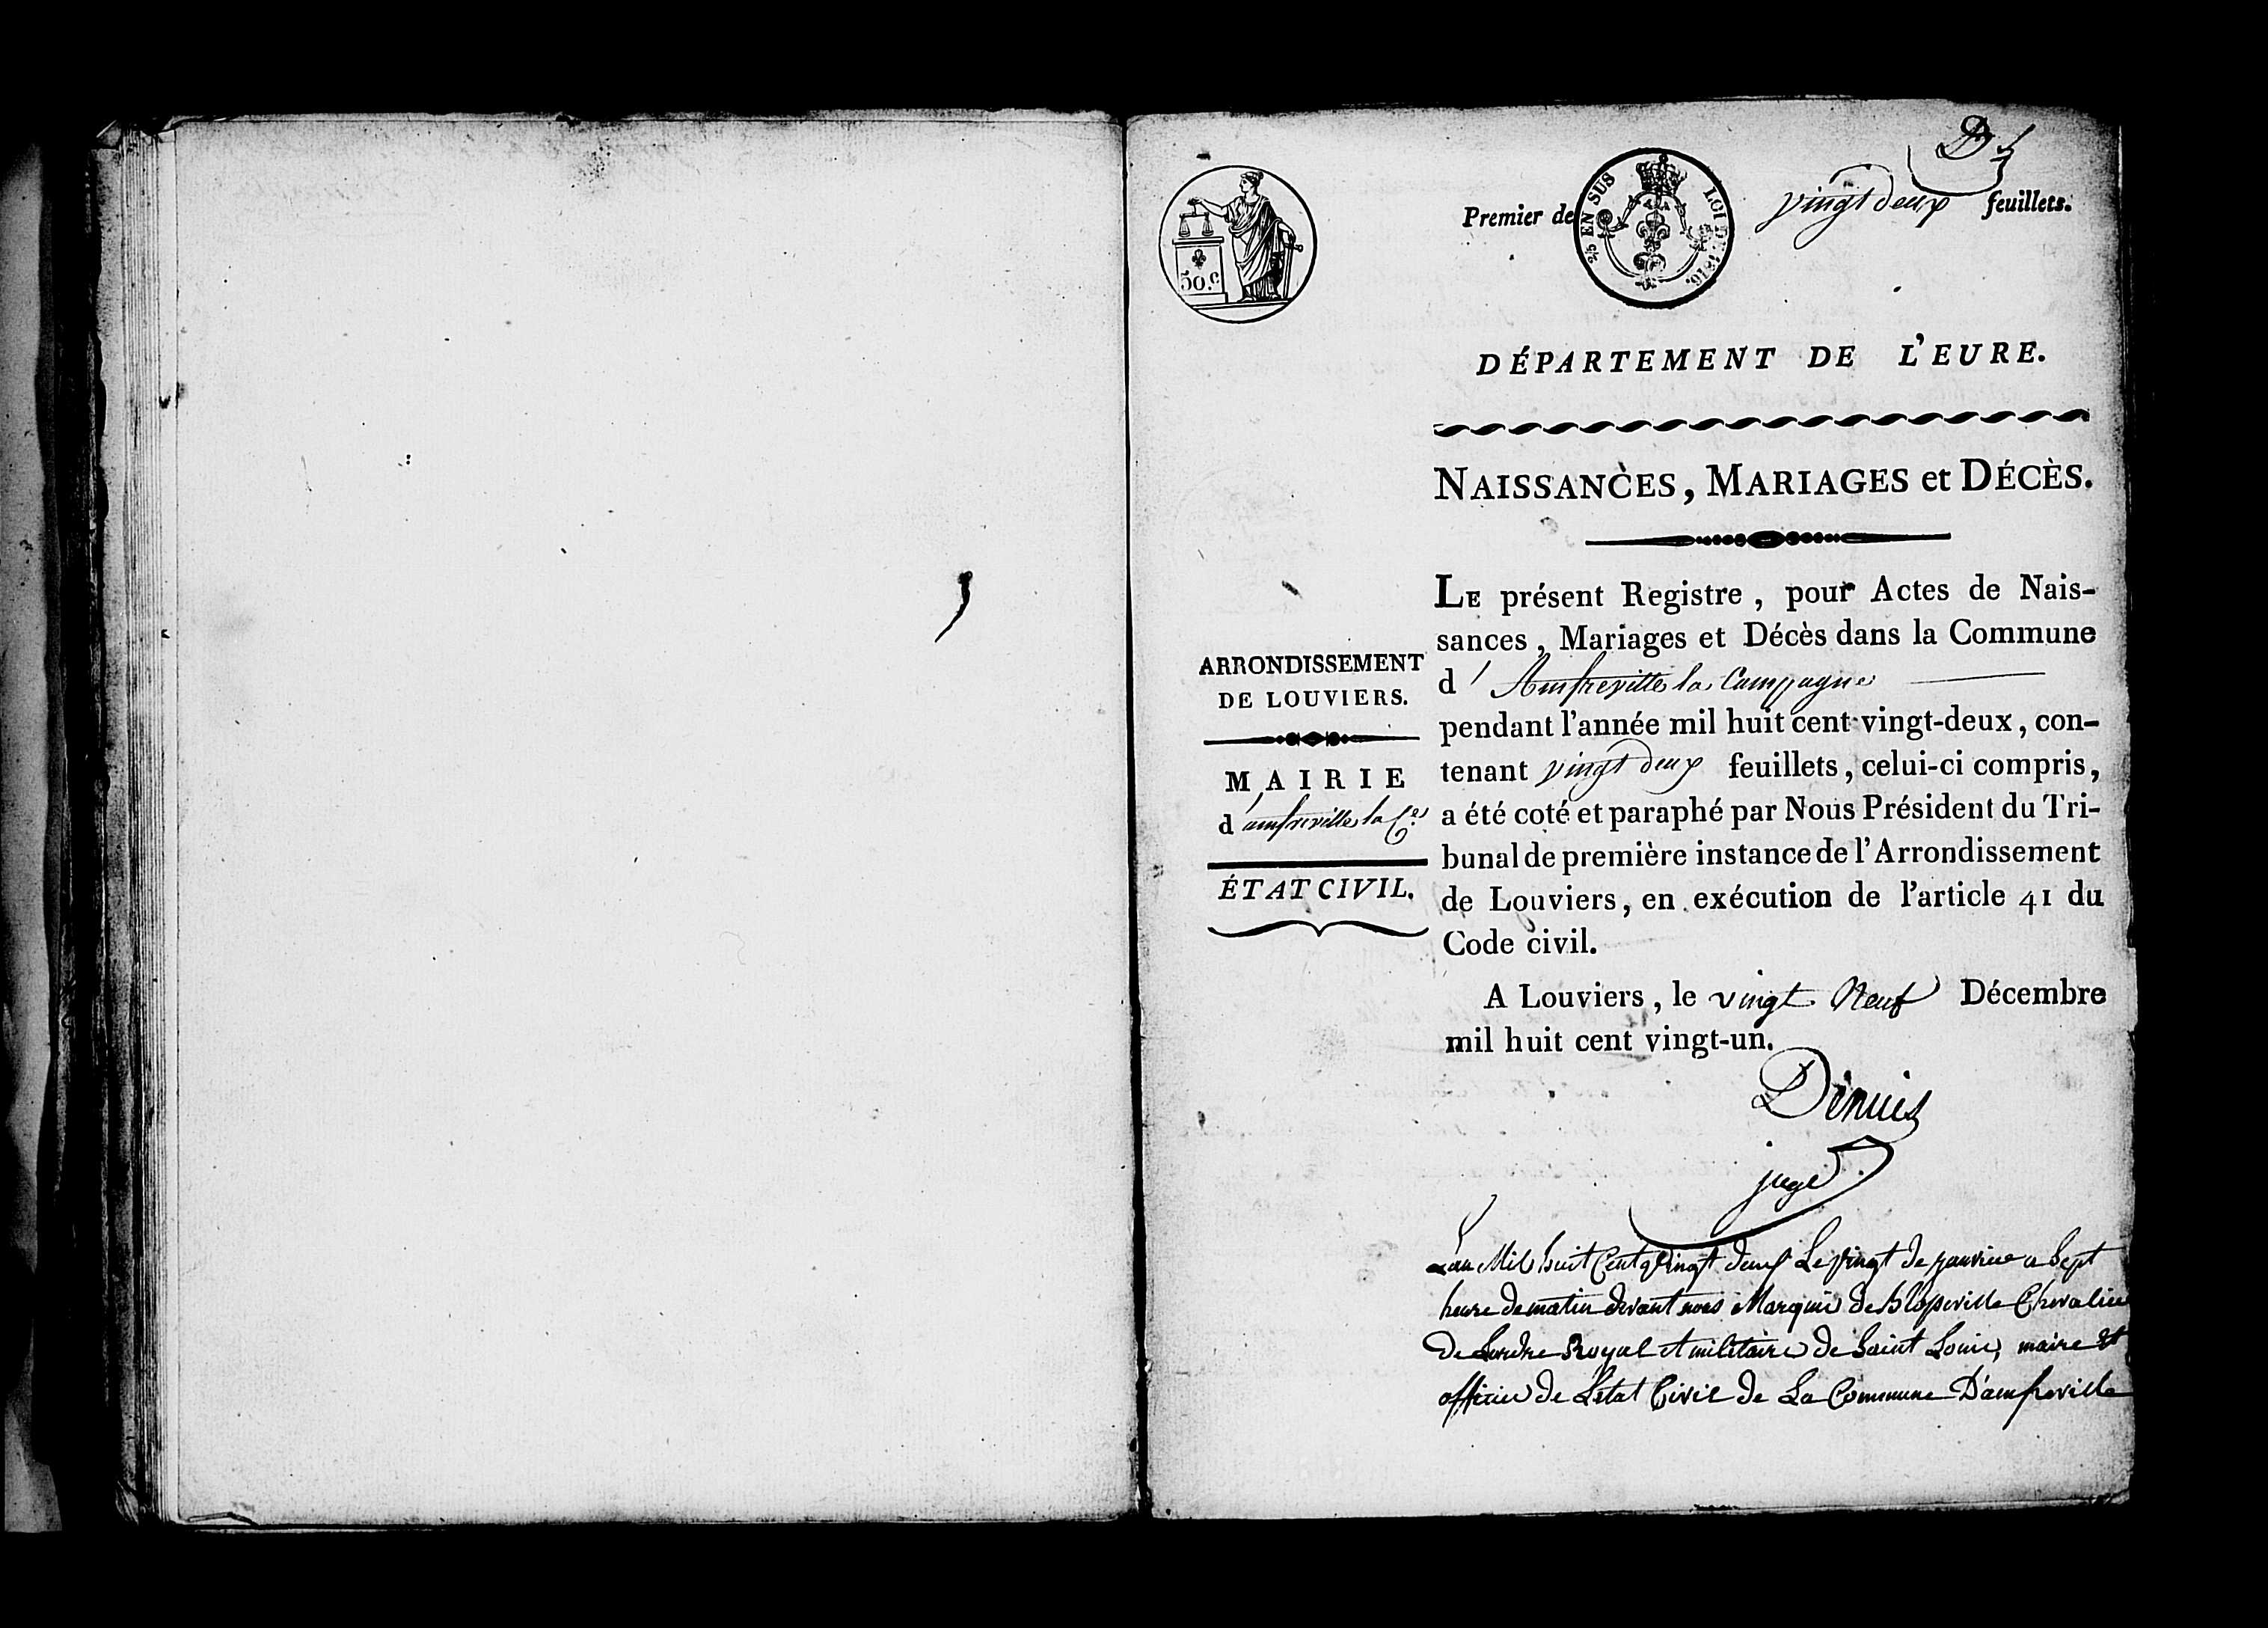 Premier de vingt deux feuillets.
50.c
2/5 EN SUS
LOI DE 1816.
DÉPARTEMENT DE L'EURE.
NAISSANCES, MARIAGES et DÉCÈS.
ARRONDISSEMENT
DE LOUVIERS.
MAIRIE
d'amfreville la Cne
ÉTAT CIVIL.
LE présent Registre, pour Actes de Nais-
sances, Mariages et Décès dans la Commune
d' Amfreville la Campagne
pendant l'année mil huit cent vingt-deux, con-
tenant vingt deux feuillets, celui-ci compris,
a été coté et paraphé par Nous Président du Tri-
bunal de première instance de l'Arrondissement
de Louviers, en exécution de l'article 41 du
Code civil.
A Louviers, le vingt Neuf Décembre
mil huit cent vingt-un.
juge
Lan Mil huit Cent Vingt deux Le vingt de janvier a Sept
heure de matin devant nous Marquis de Blosseville Chevalier
de Lordre Royal et militaire de Saint Louis, maire et
officier de Létat Civil de La Commune D'amfreville